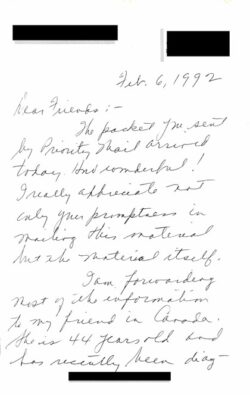 Feb. 6, 1992
Dear Friends:-
The packet you sent
by Priority Mail arrived
today. How wonderful!
I really appreciate not
only your promptness in
mailing this material
but the material itself.
I am forwarding
most of the information
to my friend in Canada.
She is 44 years old and
has recently been diag-